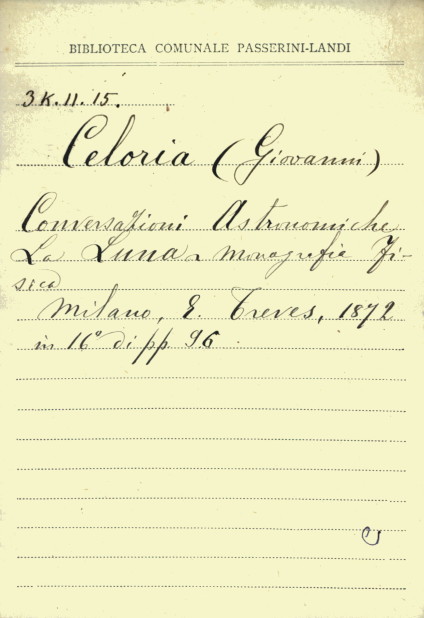 BIBLIOTECA COMUNALE PASSERINI-LANDI
3K.II.15.
Celoria (Giovanni)
Conversazioni Astronomiche
La Luna - monografia Fi-
sica
Milano, E. Treves, 1872
in 16° di pp 96.